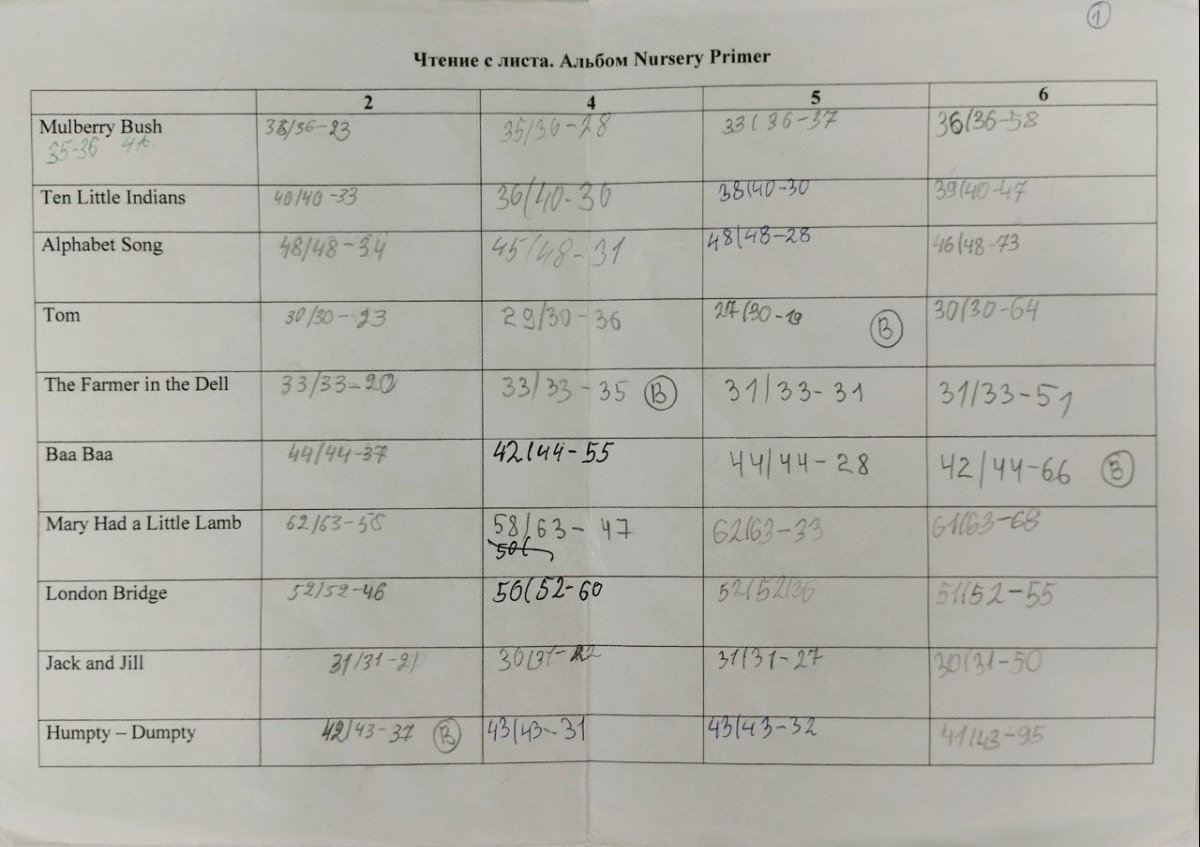 1
Чтение с листа. Альбом Nursery Primer
2 4 5 6
Mulberry Bush 38/36-23 35/36-28 33/36-37 36/36-58
35-36
Ten Little Indians 40/40-33 36/40-36 38/40-30 39/40-47
Alphabet Song 48/48-34 45/48-31 48/48-28 46/48-73
Tom 30/30-23 29/30-36 27/30-19 В 30/30-64
The Farmer in the Dell 33/33-20 33/33-35 В 31/33-31 31/33-51
Baa Baa 44/44-37 42/44-55 44/44-28 42/44-66 В
Mary Had a Little Lamb 62/63-58 58/63-47 62/63-33 61/63-68
50/
London Bridge 52/52-46 50/52-60 52/52/36 51/52-55
Jack and Jill 31/31-21 30/31-22 31/31-27 30/31-50
Humpty – Dumpty 42/43-37 В 43/43-31 43/43-32 41/43-95